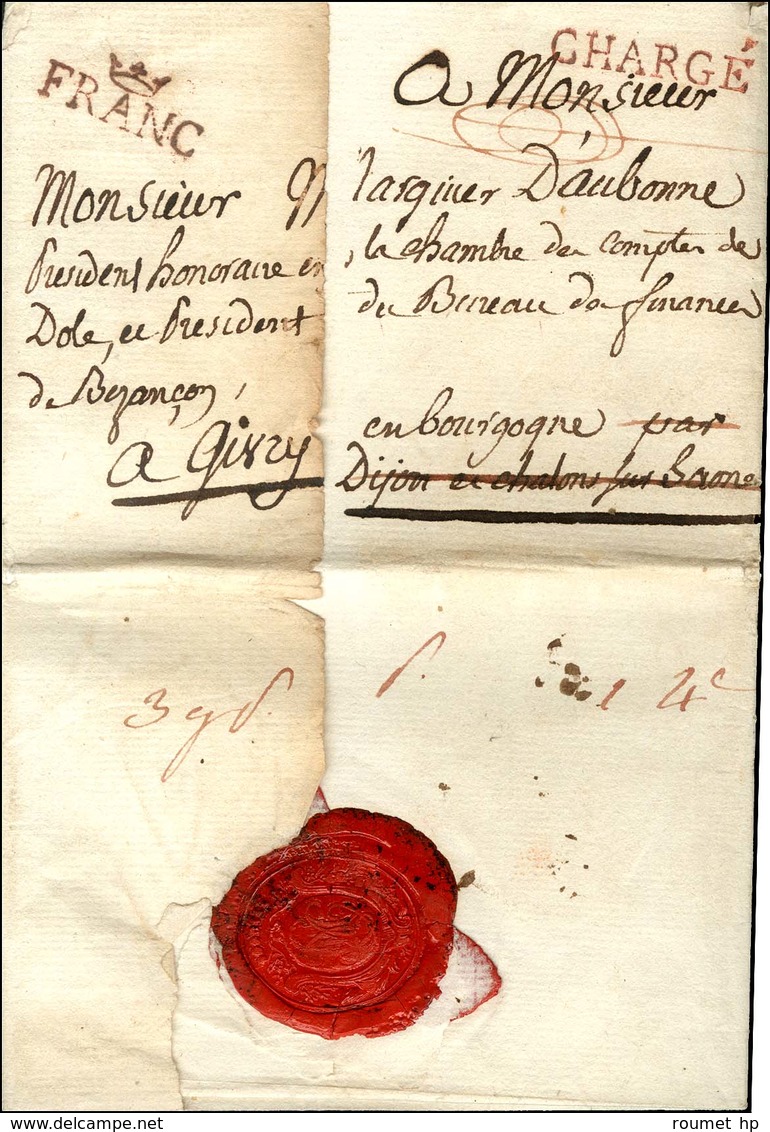 FRANC
CHARGÉ
A Monsieur
Monsieur Marquier Daubonne
President honoraire en la chambre des comptes de
Dole, et President du Bureau des finances
de Bezançon,
a Givry en bourgogne par
Dijon et chalons sur Saone
roumet hp